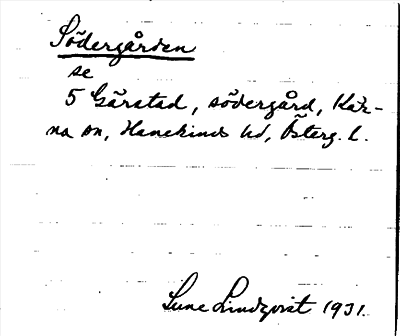 Södergården
se
5 Gärstad, södergård, Kär-
na sn, Hanekinds hd, Österg. l.
Sune Lindqvist 1931.